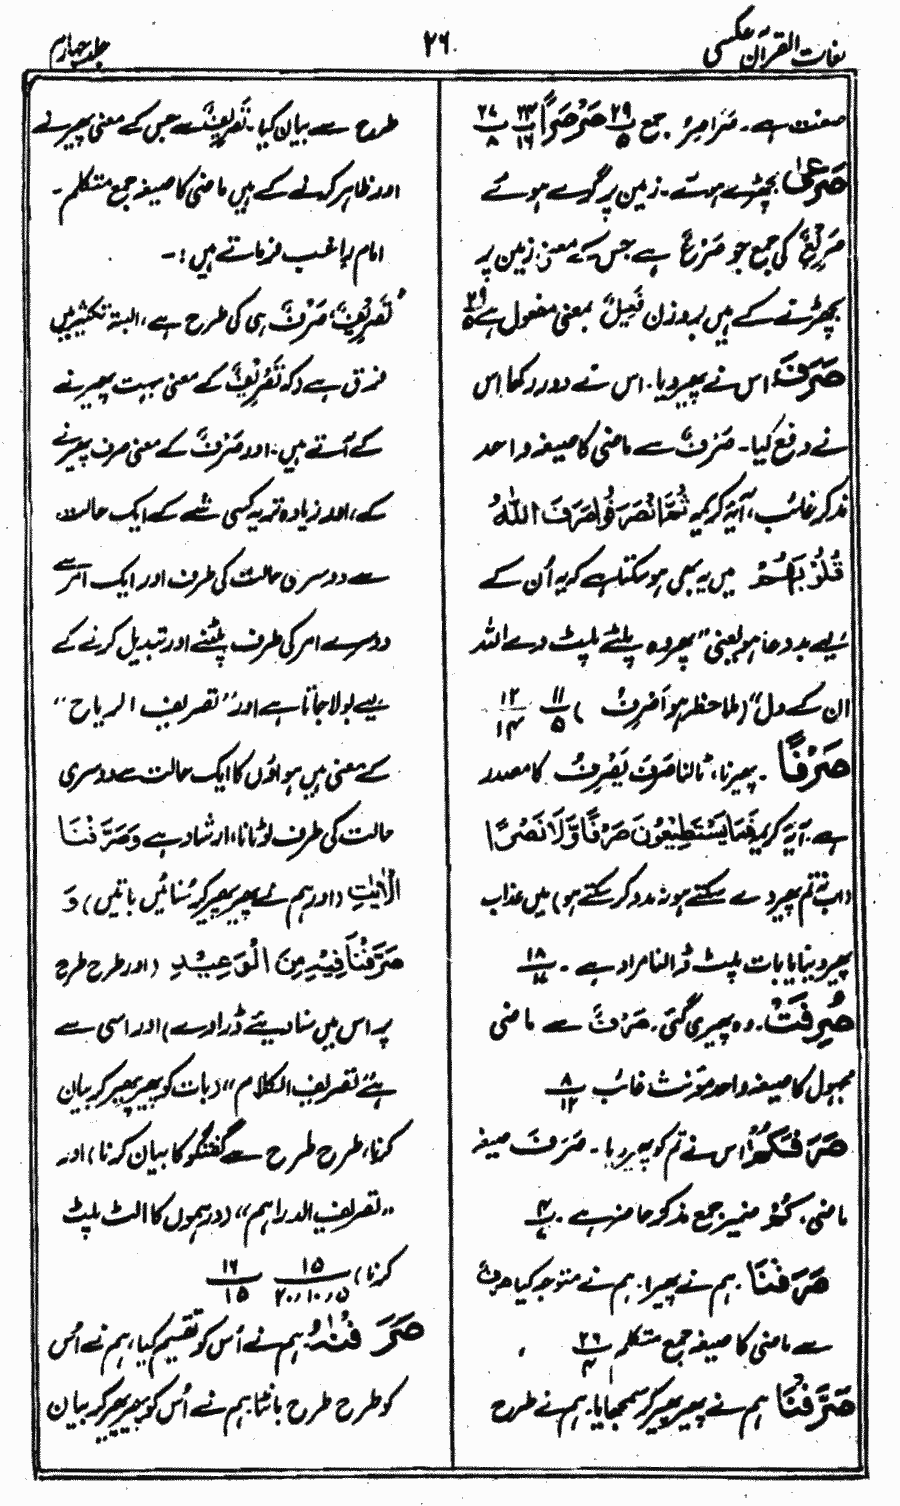 لغات القرآن عکسی
۲۶
جلد چہارم
صفت ہے۔ صَرَاصِرُ جمع ۲۹/۵ صَرْصَرًا ۲۳/۱۶ ۲۷/۸
صَرْعٰی بچھڑے ہوئے۔ زمین پر گرے ہوئے
صَرِیْعٌ کی جمع جو صَرْعٌ ہے جس کے معنی زمین پر
بچھڑنے کے ہیں بروزن فَعِیْلٌ بمعنی مفعول ہے ۲۹/۵
صَرَفَ اس نے پھیر دیا۔ اس نے دور رکھا اس
نے دفع کیا۔ صَرْفٌ سے ماضی کا صیغہ واحد
مذکر غائب، آیۂ کریمہ ثُمَّ انْصَرَفُوْا صَرَفَ اللّٰہُ
قُلُوْبَہُمْ میں یہ بھی ہو سکتا ہے کہ یہ اُن کے
لیے بد دعا ہو یعنی "پھر وہ پلٹے پلٹ دے اللہ
ان کے دل" (ملاحظہ ہو اَصْرِفُ) ۱۱/۵ ۱۲/۱۴
صَرْفًا۔ پھیرنا، ٹالنا صَرَفَ یَصْرِفُ کا مصدر
ہے۔ آیۂ کریمہ فَمَا یَسْتَطِیْعُوْنَ صَرْفًا وَّلَا نَصْرًا
(اب نہ تم پھیر دے سکتے ہو نہ مدد کر سکتے ہو) میں عذاب
پھیر دینا یا بات پلٹ ڈالنا مراد ہے۔ ۱۸/۱۷
صُرِفَتْ۔ وہ پھیری گئی۔ صَرْفٌ سے ماضی
مجہول کا صیغہ واحد مؤنث غائب ۸/۱۲
صَرَفَکُمْ اس نے تم کو پھیر دیا۔ صَرَفَ صیغہ
ماضی، کُمْ ضمیر جمع مذکر حاضر ہے۔ ۴/۷
صَرَفْنَا۔ ہم نے پھیرا۔ ہم نے متوجہ کیا صَرْفٌ
سے ماضی کا صیغہ جمع متکلم ۲۶/۴
صَرَّفْنَا ہم نے پھیر پھیر کر سمجھایا۔ ہم نے طرح
طرح سے بیان کیا۔ تَصْرِیْفٌ سے جس کے معنی پھیرنے
اور ظاہر کرنے کے ہیں ماضی کا صیغہ جمع متکلم۔
امام راغب فرماتے ہیں:۔
تَصْرِیْفٌ، صَرْفٌ ہی کی طرح ہے، البتہ تکثیر میں
فرق ہے کہ تَصْرِیْفٌ کے معنی بہت پھیرنے
کے آتے ہیں۔ اور صَرْفٌ کے معنی صرف پھیرنے
کے، اور زیادہ تر یہ کسی شے کے ایک حالت
سے دوسری حالت کی طرف اور ایک امر سے
دوسرے امر کی طرف پلٹنے اور تبدیل کرنے کے
لیے بولا جاتا ہے اور "تصریف الریاح"
کے معنی ہیں ہواؤں کا ایک حالت سے دوسری
حالت کی طرف لوٹانا، ارشاد ہے وَصَرَّفْنَا
الْاٰیٰتِ (اور ہم نے پھیر پھیر کر سُنائیں باتیں) وَ
صَرَّفْنَا فِیْہِ مِنَ الْوَعِیْدِ (اور طرح طرح
پر اس میں سنا دیئے ڈراوے) اور اسی سے
ہے "تصریف الکلام" (بات کو پھیر پھیر کر بیان
کرنا، طرح طرح سے گفتگو کا بیان کرنا) اور
"تصریف الدراہم" (درہموں کا الٹ پلٹ
کرنا) ۱۵/۵،۱۰،۲۰ ۱۶/۱۵
صَرَّفْنٰہُ ہم نے اُس کو تقسیم کیا، ہم نے اُس
کو طرح طرح بانٹا ہم نے اُس کو پھیر پھیر کر بیان